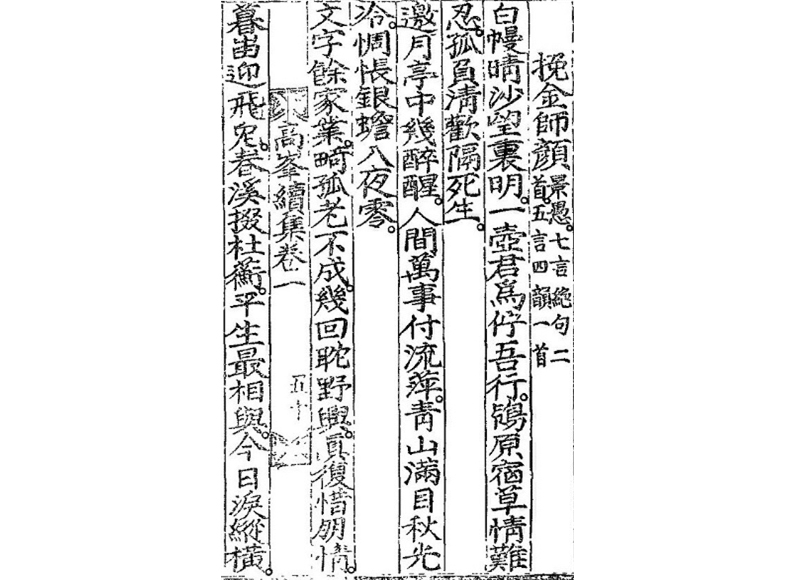 挽金師顔 景愚。七言絶句二
首。五言四韻一首
白幔晴沙望裏明。一壺君爲佇吾行。鴒原宿草情難
忍。孤負淸歡隔死生。
邀月亭中幾醉醒。人間萬事付流萍。靑山滿目秋光
冷。惆悵銀蟾八夜零。
文字餘家業。畸孤老不成。幾回耽野興。眞復惜朋情。
高峯續集卷一 五十
暮峀迎飛鳧。春溪掇杜蘅。平生最相與。今日淚縱橫。